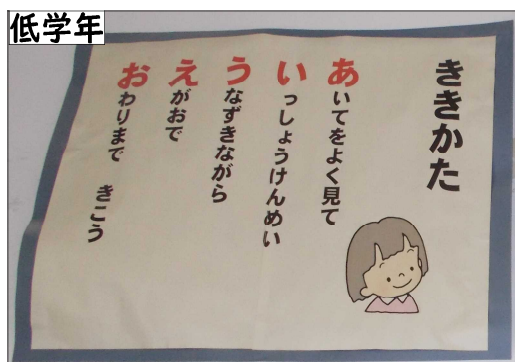 低学年
ききかた
あいてをよく見て
いっしょうけんめい
うなずきながら
えがおで
おわりまで　きこう